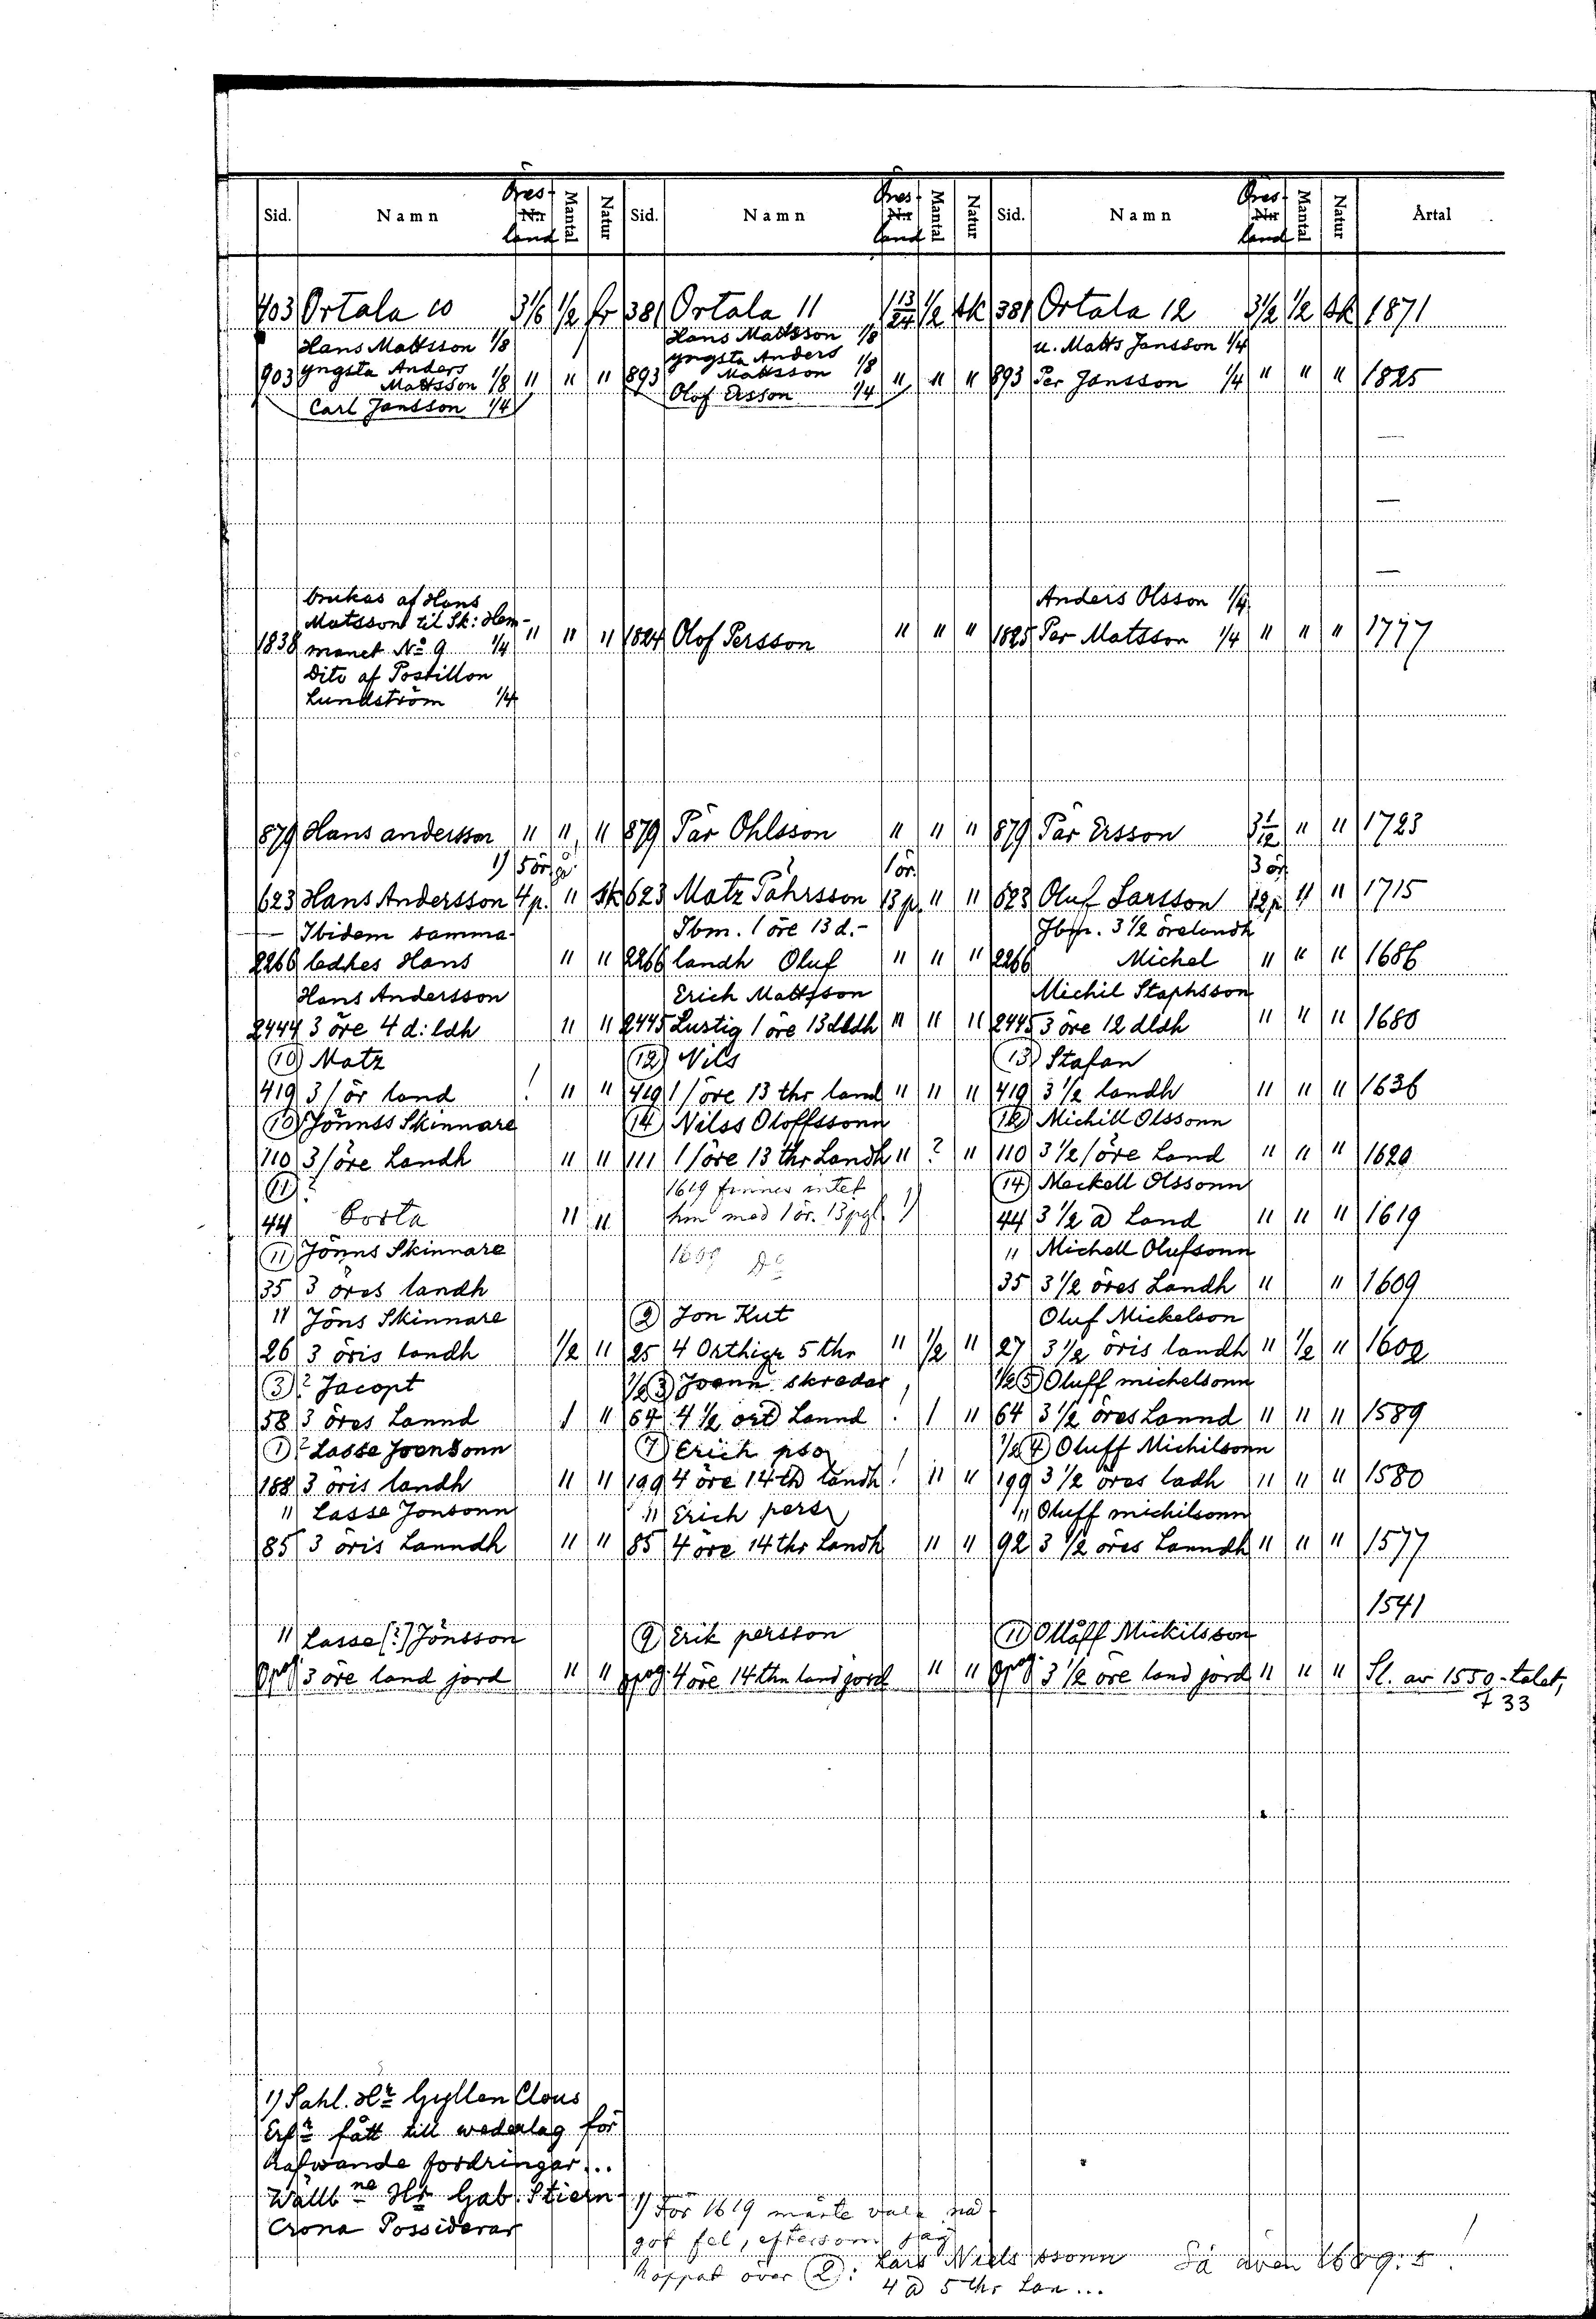 Öres- Öres- Öres-
Sid. Namn Nr Mantal Natur Sid. Namn Nr Mantal Natur Sid. Namn Nr Mantal Natur Årtal
land land land
403 Ortala 10 3 1/6 1/2 fr 381 Ortala 11 1 13/24 1/2 sk 381 Ortala 12 3 1/2 1/2 sk 1871
Hans Mattsson 1/8 Hans Mattsson 1/8 u. Matts Jansson 1/4
yngsta Anders yngsta Anders
903 Mattsson 1/8 " " " 893 Mattsson 1/8 " " " 893 Per Jansson 1/4 " " " 1825
Carl Jansson 1/4 Olof Ersson 1/4
—
—
—
brukas af Hans Anders Olsson 1/4
Matsson til Sk: Hem-
1838 manet No 9 1/4 " " " 1824 Olof Persson " " " 1825 Per Matsson 1/4 " " " 1777
Dito af Postillon
Lundström 1/4
879 Hans andersson " " " 879 Pär Ohlsson " " " 879 Pär Ersson 3 1/12 " " 1723
1) 3 ör 1 ör. 3 ör
623 Hans Andersson 4 p. " Sk 623 Matz Pährsson 13 p. " " 623 Oluf Larsson 12 p " " 1715
— Ibidem samma- Ibm. 1 öre 13 d.- Jbm. 3 1/2 örelandh
2266 ledhes Hans " " 2266 landh Oluf " " " 2266 Michel " " " 1686
Hans Andersson Erich Mattsson Michil Staphsson
2444 3 öre 4 d: ldh " " 2445 Lustig 1 öre 13 dldh " " " 2445 3 öre 12 dldh " " " 1680
(10) Matz (12) Nils (13) Stafan
419 3/ör land ! " " 419 1/öre 13 thr land " " " 419 3 1/2 landh " " " 1636
(10) Jönnss Skinnare (14) Nilss Oloffssonn (12) Michill Olssonn
110 3/öre Landh " " 111 1/öre 13 thr Landh " ? " 110 3 1/2/öre Land " " " 1620
(11)? 1619 finnes intet (14) Meckell Olssonn
44 borta " " hm med 1 ör. 13 pgl 1) 44 3 1/2 a Land " " " 1619
(11) Jönns Skinnare 1609 Do " Michell Olufsonn
35 3 öres landh 35 3 1/2 öres Landh " " 1609
" Jöns Skinnare (2) Jon Kut Oluf Mickelson
26 3 öris landh 1/2 " 25 4 Orthige 5 thr " 1/2 " 27 3 1/2 öris landh " 1/2 " 1602
(3)? Jacopt 1/2 (3) Joenn skredar 1/2 (5) Oluff michelsonn
58 3 öres Lannd 1 " 64 4 1/2 ort Lannd ! 1 " 64 3 1/2 öres Lannd " " " 1589
(1)? Lasse Joensonn (7) Erich pso 1/2 (4) Oluff Michilsonn
188 3 öris landh " " 199 4 öre 14 th landh ! " " 199 3 1/2 öres ladh " " " 1580
" Lasse Jonsonn " Erich pers " Oluff michilsonn
85 3 öris Lanndh " " 85 4 öre 14 thr Landh " " 92 3 1/2 öres Lanndh " " " 1577
1541
" Lasse (?) Jönsson (9) Erik persson (11) Olloff Mickilsson
opag 3 öre land jord " " opag. 4 öre 14 thn land jord " " opag 3 1/2 öre land jord " " " Sl. av 1550-talet,
F 33
1) Sahl. Hr Gyllen Clous
Erfr fått till wederlag för
hafwande fordringar...
Wällbne Hr Gab. Stiern-
Crona Possiderar
1) För 1619 måste vara nå
got fel, eftersom jag
hoppat över (2): Lars Niels ssonn Så även 1609: s
4 a 5 thr Lan...